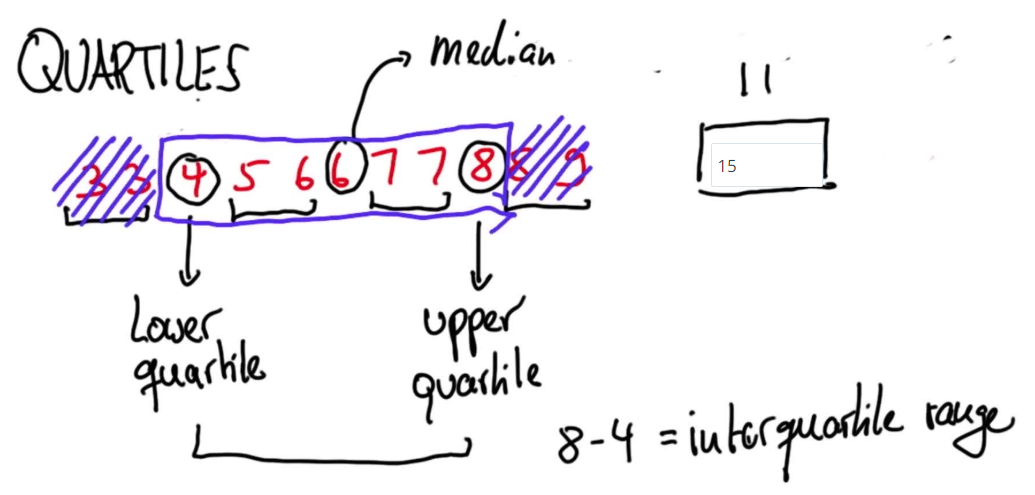 QUARTILES
median
11
3 3 4 5 6 6 7 7 8 8 9
15
Lower
quartile
upper
quartile
8-4 = interquartile range